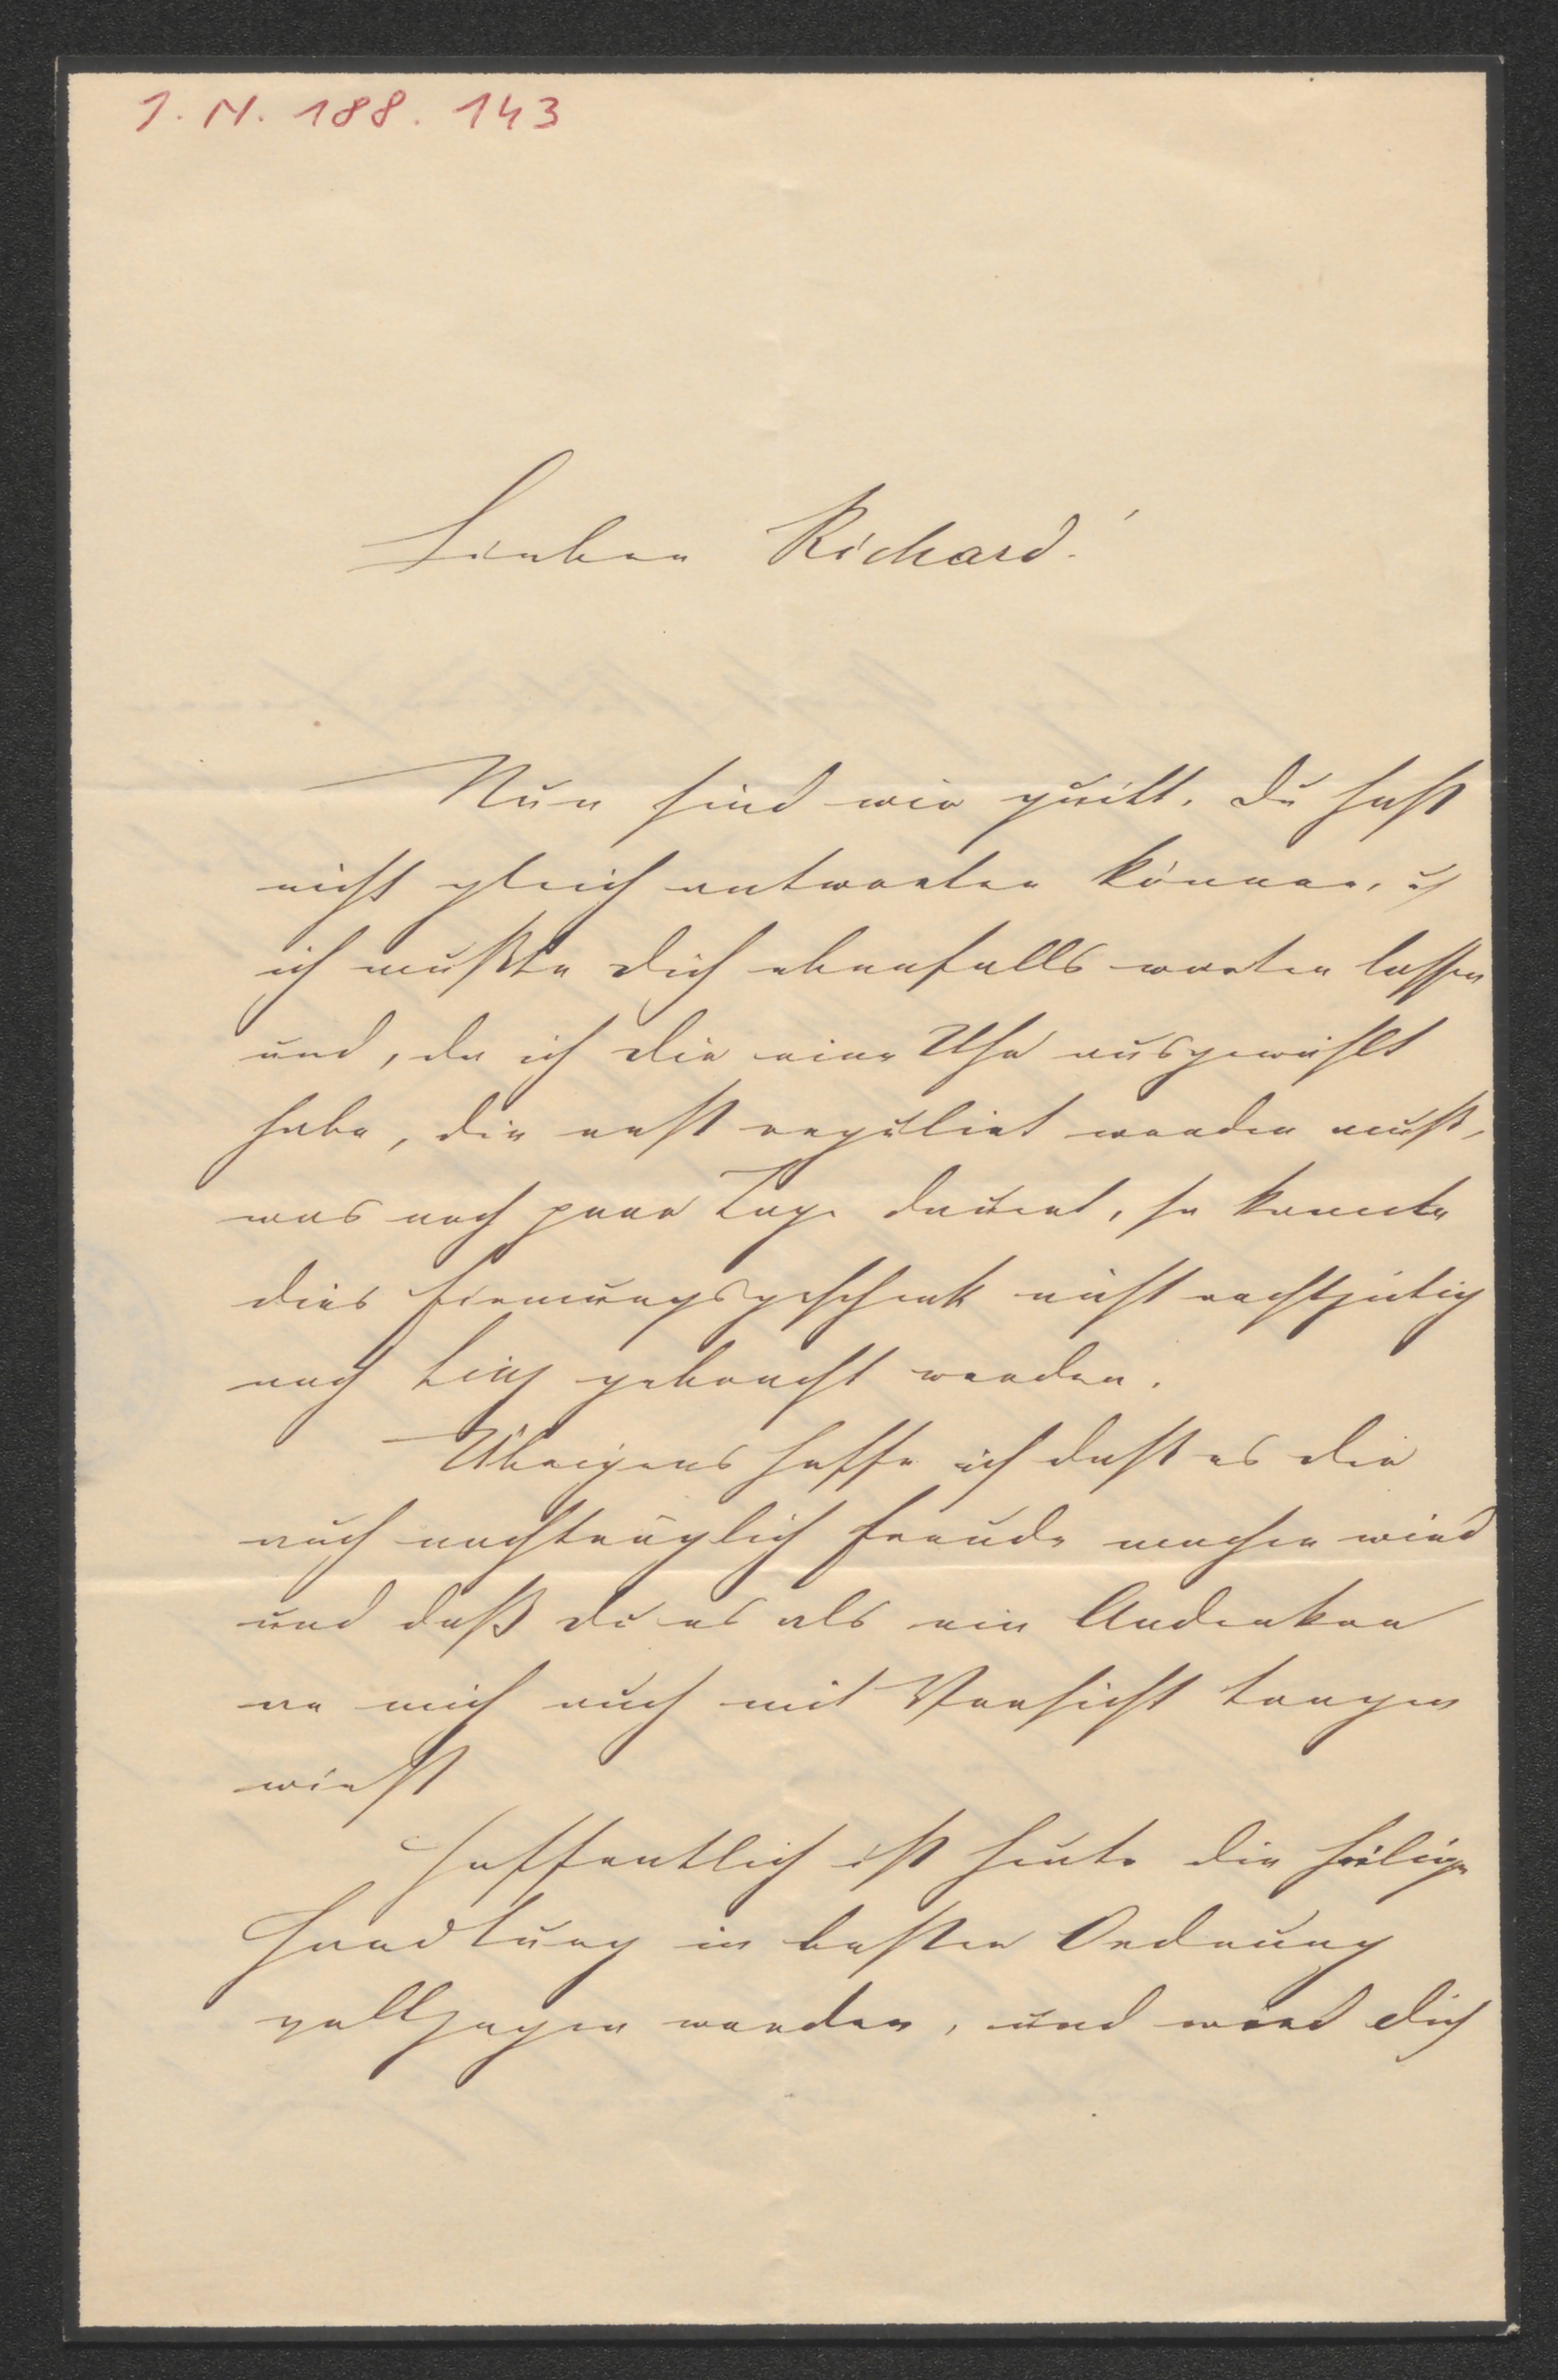 I. N. 188. 143
Lieber Richard!
Nun sind wir quitt. Du hast
nicht gleich antworten können, u
ich mußte Dich ebenfalls warten lassen
und, da ich Dir eine Uhr ausgewählt
habe, die erst reguliert werden muß,
was noch paar Tage dauert, so konnte
dies Firmungsgeschenk nicht rechtzeitig
nach Linz gebracht werden.
Übrigens hoffe ich daß es Dir
auch nachträglich Freude machen wird
und daß Du es als ein Andenken
an mich auch mit Vorsicht tragen
wirst
Hoffentlich ist heute die heilige
Handlung in bester Ordnung
vollzogen worden, und wird Dich